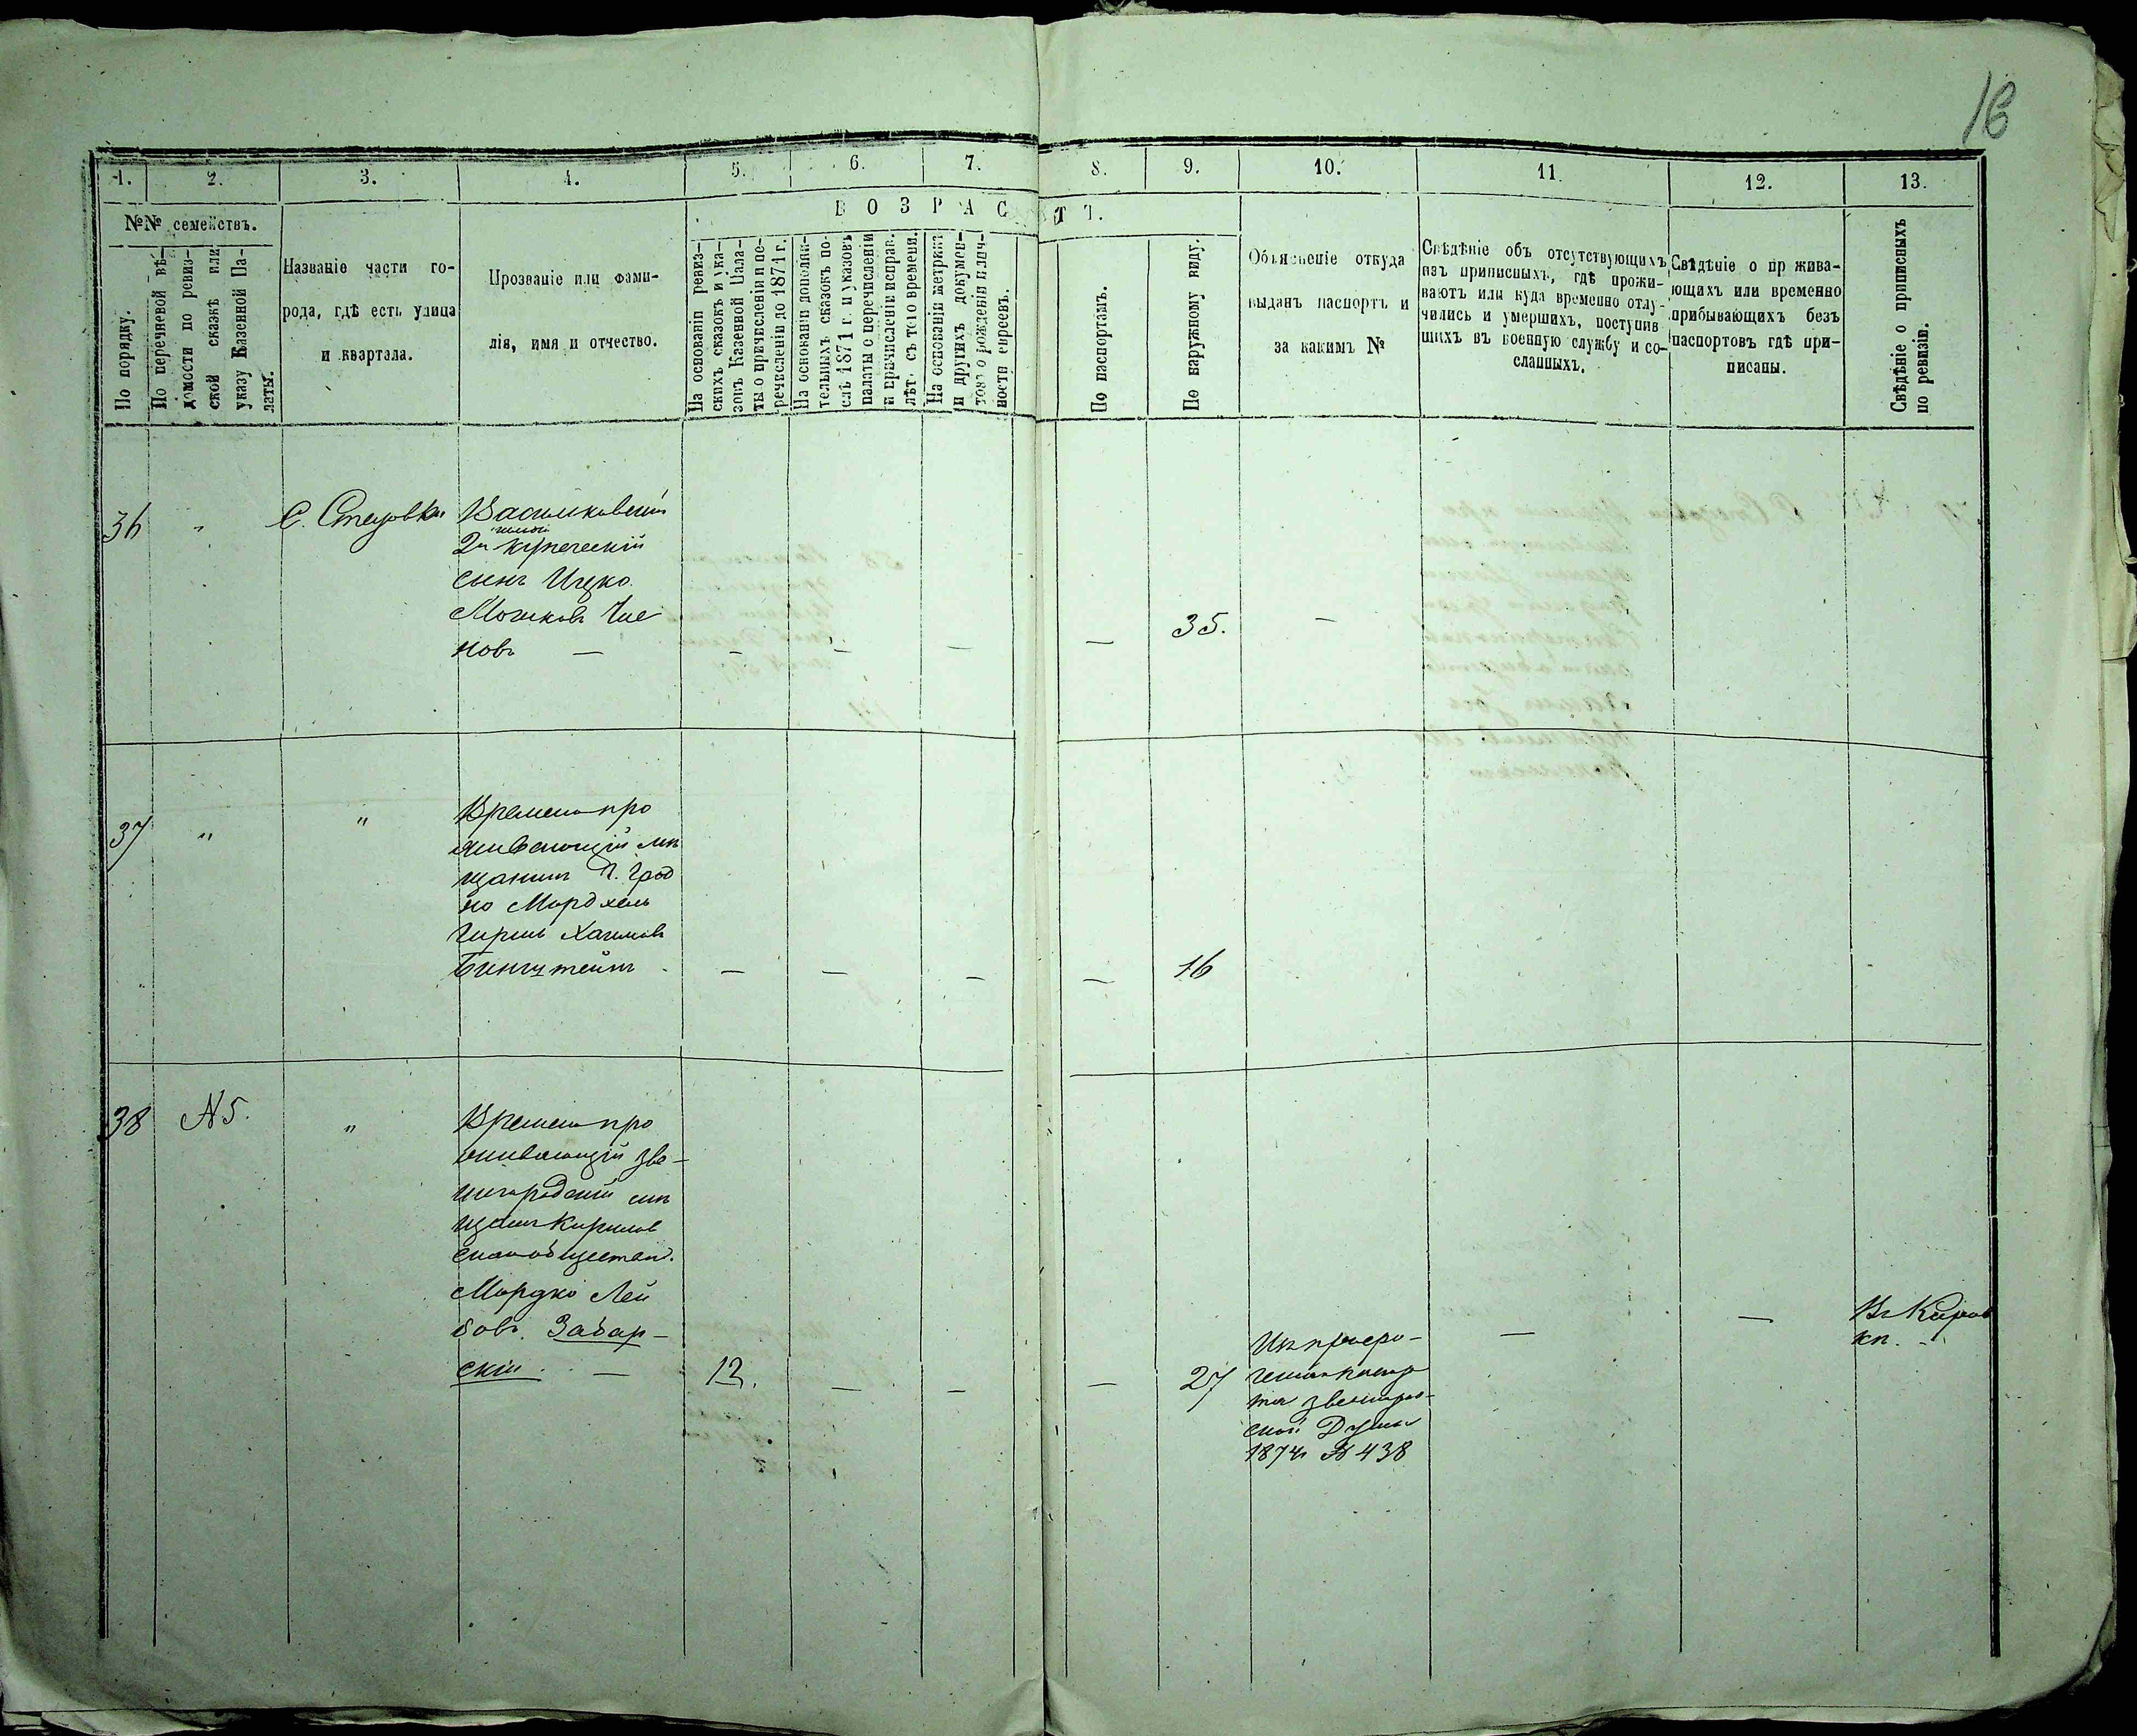 16
1.
2.
3.
4.
5.
6.
7.
8.
9.
10.
11.
12.
13.
№№ семействъ.
По порядку.
По перечневой вѣ-
домости по ревиз-
ской сказкѣ или
указу Казенной Па-
латы.
Названіе части го-
рода, гдѣ есть улица
и квартала.
Прозваніе или фами-
лія, имя и отчество.
ВОЗРАСТЪ.
На основаніи ревиз-
скихъ сказокъ и ука-
зовъ Казенной Пала-
ты о причисленіи и пе-
речисленіи до 1871 г.
На основаніи дополни-
тельныхъ сказокъ по-
слѣ 1871 г. и указовъ
палаты о перечисленіи
и причисленіе исправ.
лѣтъ съ того времени.
На основаніи метрикъ
и другихъ докумен-
товъ о рожденіи налич-
ности евреевъ.
По паспортамъ.
По наружному виду.
Объясненіе откуда
выданъ паспортъ и
за какимъ №
Свѣдѣніе объ отсутствующихъ
изъ приписныхъ, гдѣ прожи-
ваютъ или куда временно отлу-
чились и умершихъ, поступив
шихъ въ военную службу и со-
сланныхъ.
Свѣдѣніе о пр жива-
ющихъ или временно
прибывающихъ безъ
паспортовъ гдѣ при-
писаны.
Свѣдѣніе о приписныхъ
по ревизіи.
36 " С. Стецовка Васильковскій
2й купеческій
сынъ Ицко
Мошковъ Чие
новъ — — — — — 35. —
37 " " Временно про
живающій мѣ
щанинъ г. Грод
но Мордхель
Гиршъ Хаимовъ
Бинштейнъ — — — — 16
38 № 5. " Временно про
живающій зве-
нигородскій мѣ
щанинъ Кирилов
скаго общества
Мордко Лей
бовъ Забар-
скій. — 12. — — — 27
та звенигород-
ской Думы
1874 г № 438
— —